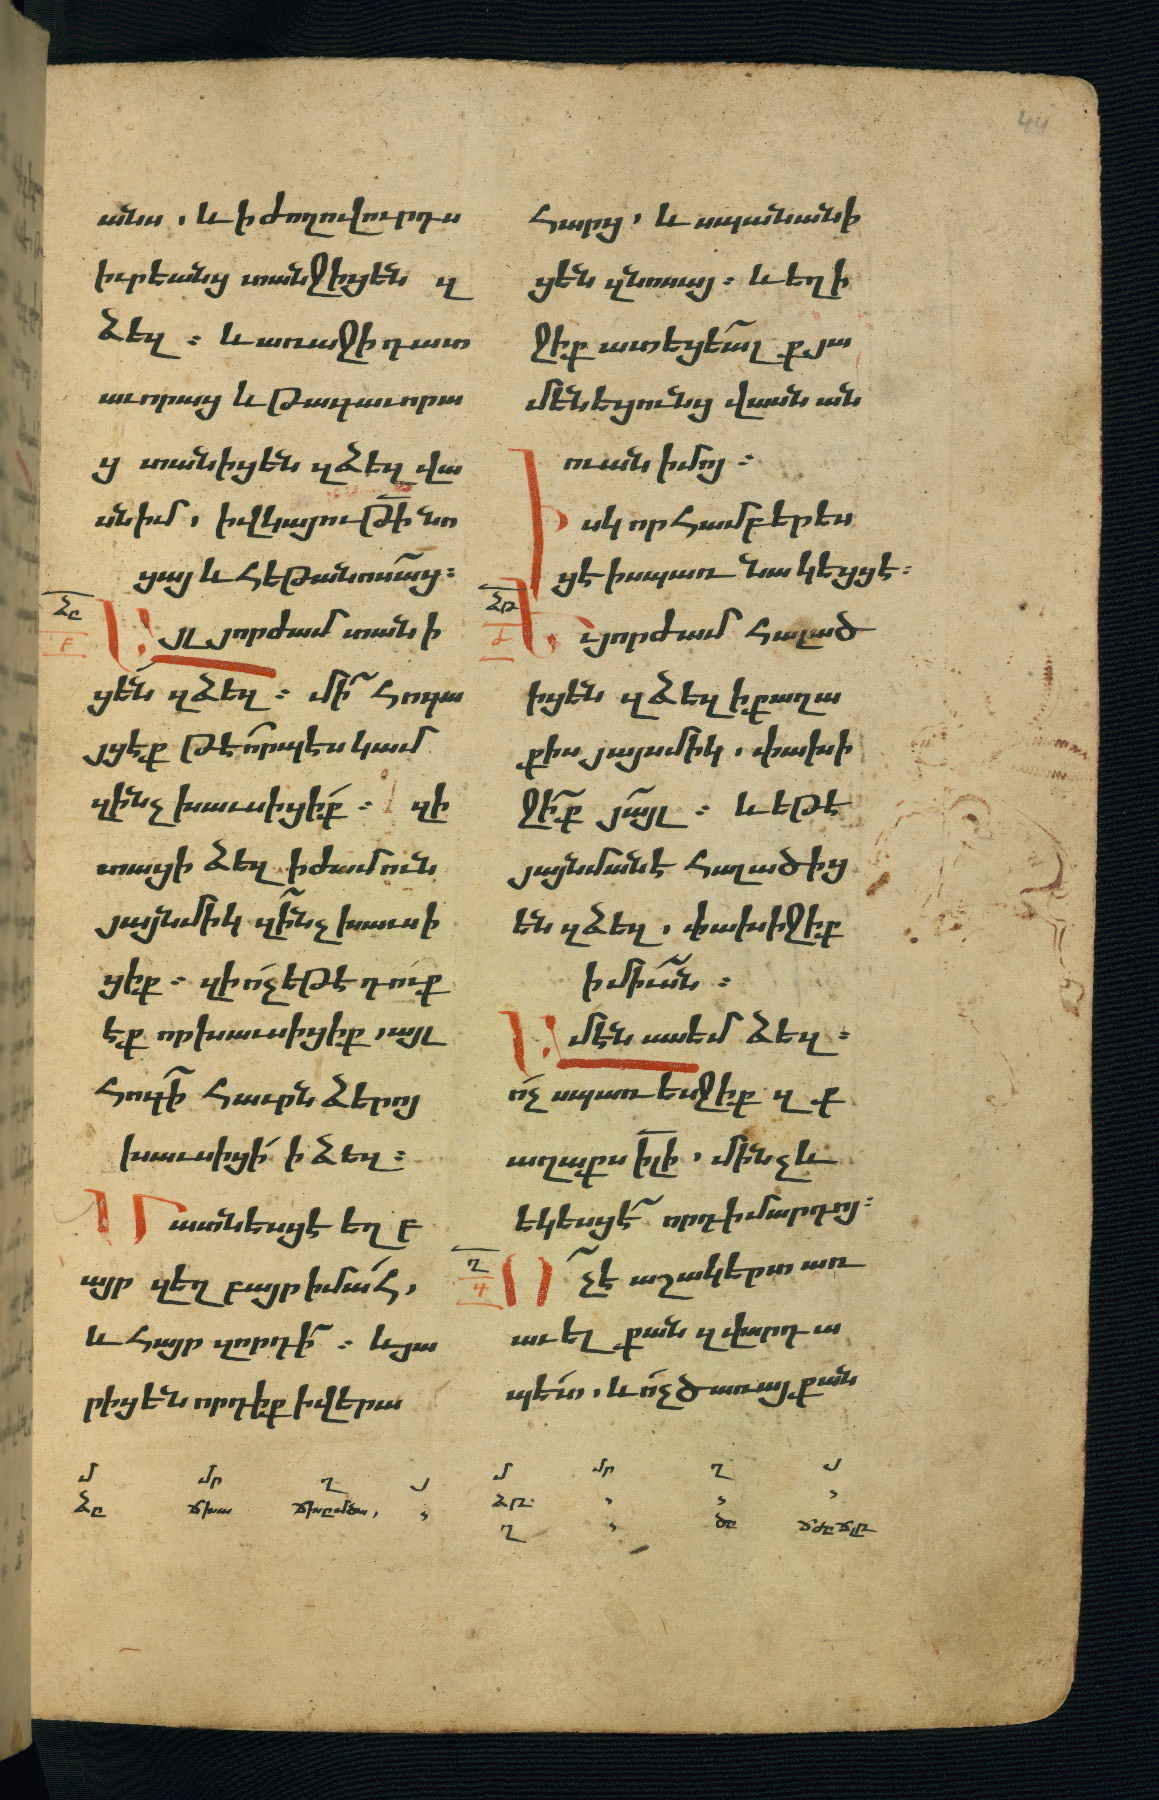 անս, և ի ժողովուրդս
իւրեանց տանջիցեն զ
ձեզ ։ և առաջի դատ
աւորաց և թագաւորա
ց տանիցեն զձեզ վա
սն իմ, ի վկայութի նո
ցա և հեթանոսաց։
Այլ յորժամ տանի
ցեն զձեզ ։ մի հոգա
յցեք թե որպես կամ
զինչ խաւսիցիք ։ զի
տացի ձեզ ի ժամուն
յայնմիկ զինչ խաւսի
ցիք ։ զի ոչ եթե դուք
եք որ խաւսիցիք, այլ
հոգի հաւրն ձերոյ
խաւսիցի ի ձեզ ։
Մատնեսցե եղբ
այր զեղբայր ի մահ,
և հայր զորդի ։ և յա
րիցեն որդիք ի վերա
հարց, և սպանանի
ցեն զնոսա ։ և եղի
ջիք ատեցեալ քյա
մենեցունց վասն ան
ուան իմոյ ։
Իսկ որ համբերես
ցե իսպառ նա կեցցե ։
ձը
ձթ
Եւ յորժամ հալած
իցեն զձեզ ի քաղա
քիս յայսմիկ, փախի
ջիք յայլ ։ և եթե
յայնմանե հալածից
են զձեզ, փախիջիք
ի միւսն ։
Ամեն ասեմ ձեզ ։
ոչ սպառեսջիք զք
աղաքս իլի, մինչև
եկեսցե որդի մարդոյ։
ղ
Ոչ է աշակերտ առ
աւել քան զվարդա
պետ, և ոչ ծառայ քան
մ մր ղ յ մ մր ղ յ
ձը ճխա ձթ
ղ ծը